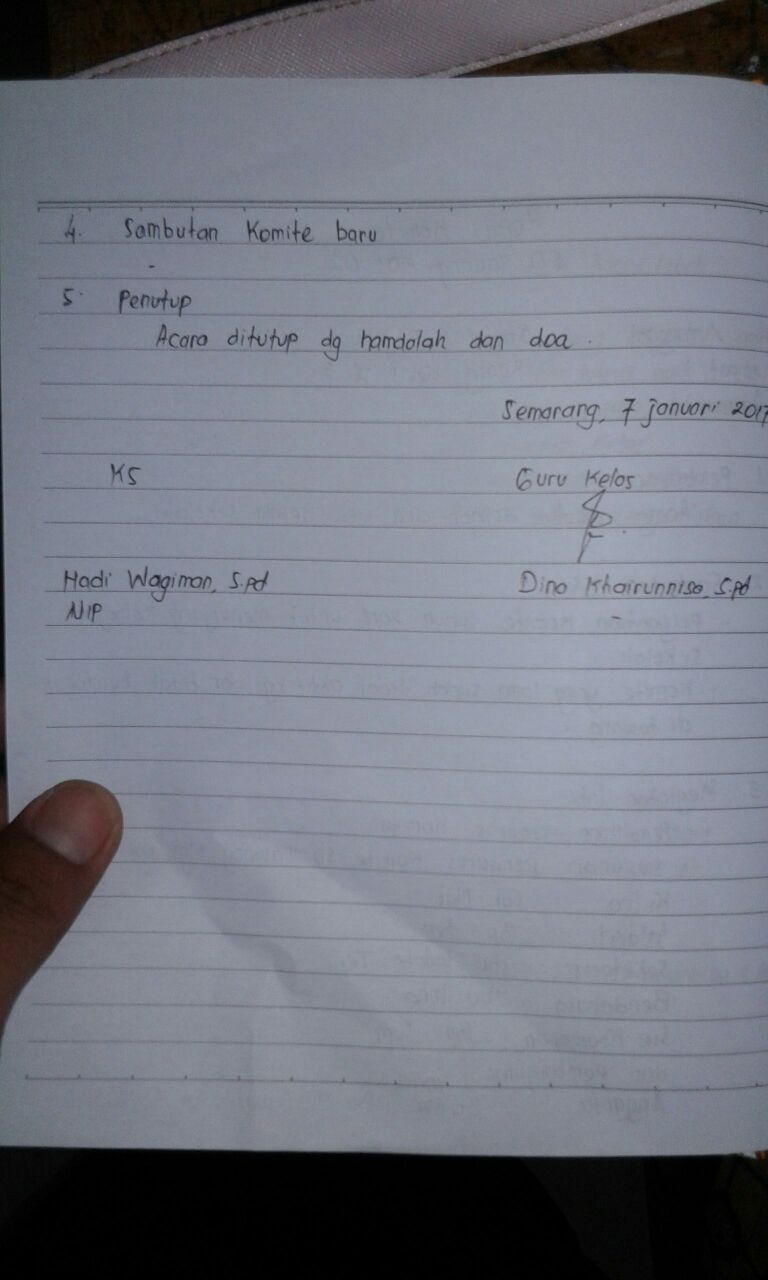 4. Sambutan Komite baru
-
5. Penutup
Acara ditutup dg hamdalah dan doa.
Semarang, 7 januari 2017
KS
Guru Kelas
Hadi Wagiman, S.pd
Dina Khairunnisa, S.pd
NIP
-